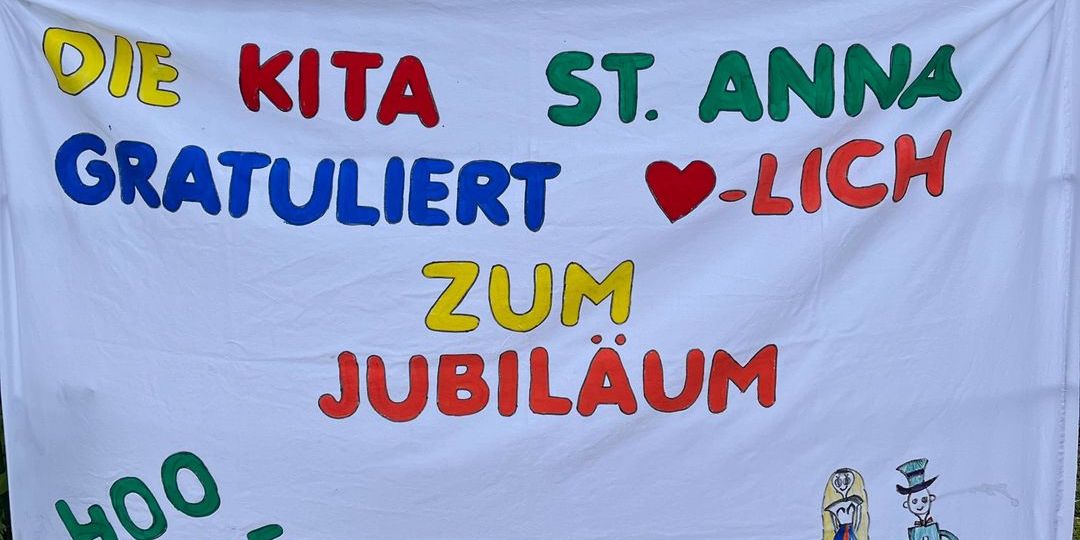 DIE KITA ST. ANNA
GRATULIERT ❤-LICH
ZUM
JUBILÄUM
HOO